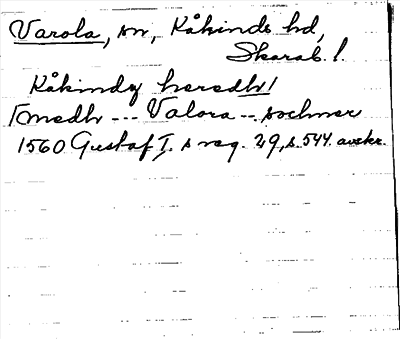 Varola, sn, Kåkinds hd,
Skarab. l.
Kåkindz heredh/
[medh --- Valora --- sochner
1560 Gustaf I. s reg. 29, s. 544. avskr.